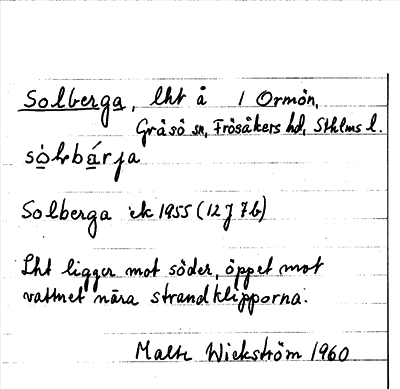 Solberga, lht å 1 Ormön,
Gräsö sn, Frösåkers hd, Sthlms l.
sòlbárja
Solberga ek 1955 (12J 7b)
Lht ligger mot söder, öppet mot
vattnet nära strandklipporna.
Malte Wickström 1960